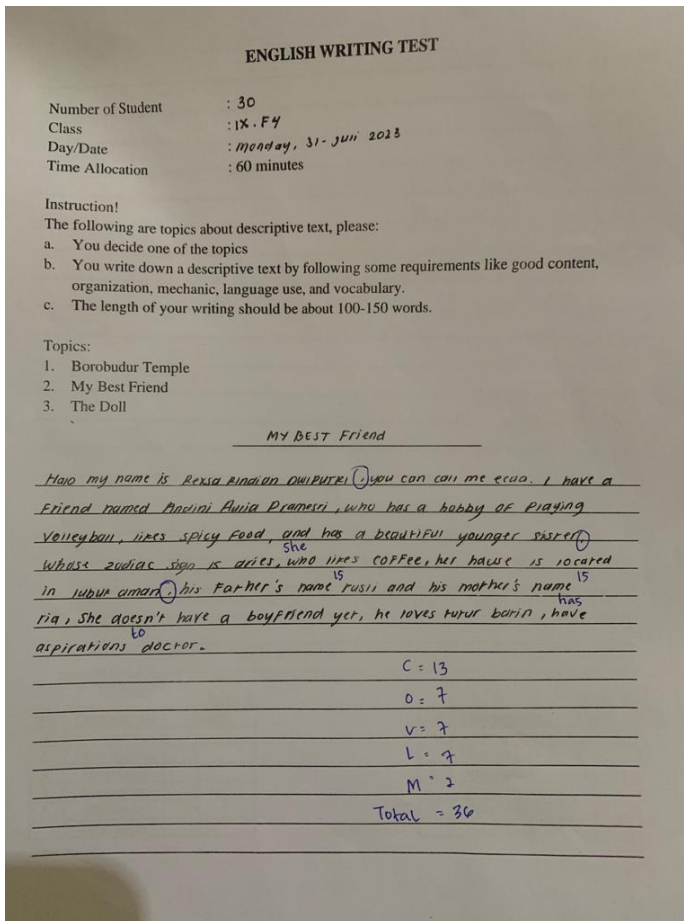 ENGLISH WRITING TEST
Number of Student : 30
Class : IX.F4
Day/Date : Monday, 31-Juni 2023
Time Allocation : 60 minutes
Instruction!
The following are topics about descriptive text, please:
a. You decide one of the topics
b. You write down a descriptive text by following some requirements like good content,
organization, mechanic, language use, and vocabulary.
c. The length of your writing should be about 100-150 words.
Topics:
1. Borobudur Temple
2. My Best Friend
3. The Doll
MY BEST Friend
Halo my name is Rexsa Rindian DWIPUTRI , you can call me ecaa. I have a
Friend named Andini Auria Pramesri , who has a hobby of Playing
Volleyball, likes spicy Food, and has a beautiful younger sister,
she
Whose zudiac sign is aries, who likes coffee, her hause is located
is is
in lubuk aman, his Father's name rusli and his mother's name
has
ria, She doesn't have a boyfriend yet, he loves turur barin, have
to
aspirations doctor.
C = 13
O = 7
V = 7
L = 7
M = 2
Total = 36